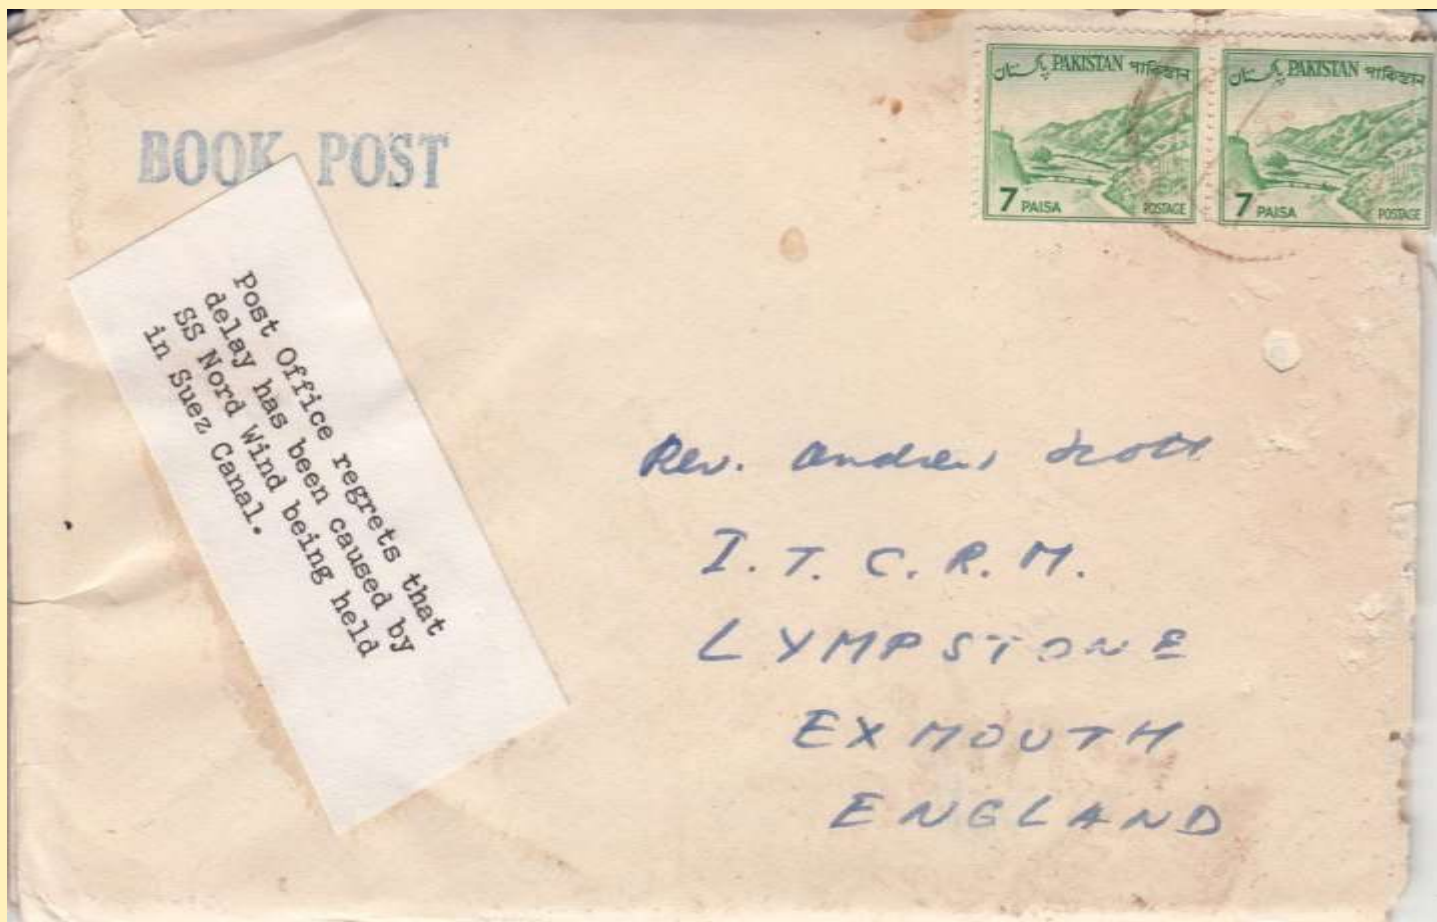 BOOK POST
پاکستان PAKISTAN পাকিস্তান
7 PAISA POSTAGE
پاکستان PAKISTAN পাকিস্তান
7 PAISA POSTAGE
Post Office regrets that
delay has been caused by
SS Nord Wind being held
in Suez Canal.
Rev. Andrew Scott
I.T.C.R.M.
LYMPSTONE
EXMOUTH
ENGLAND